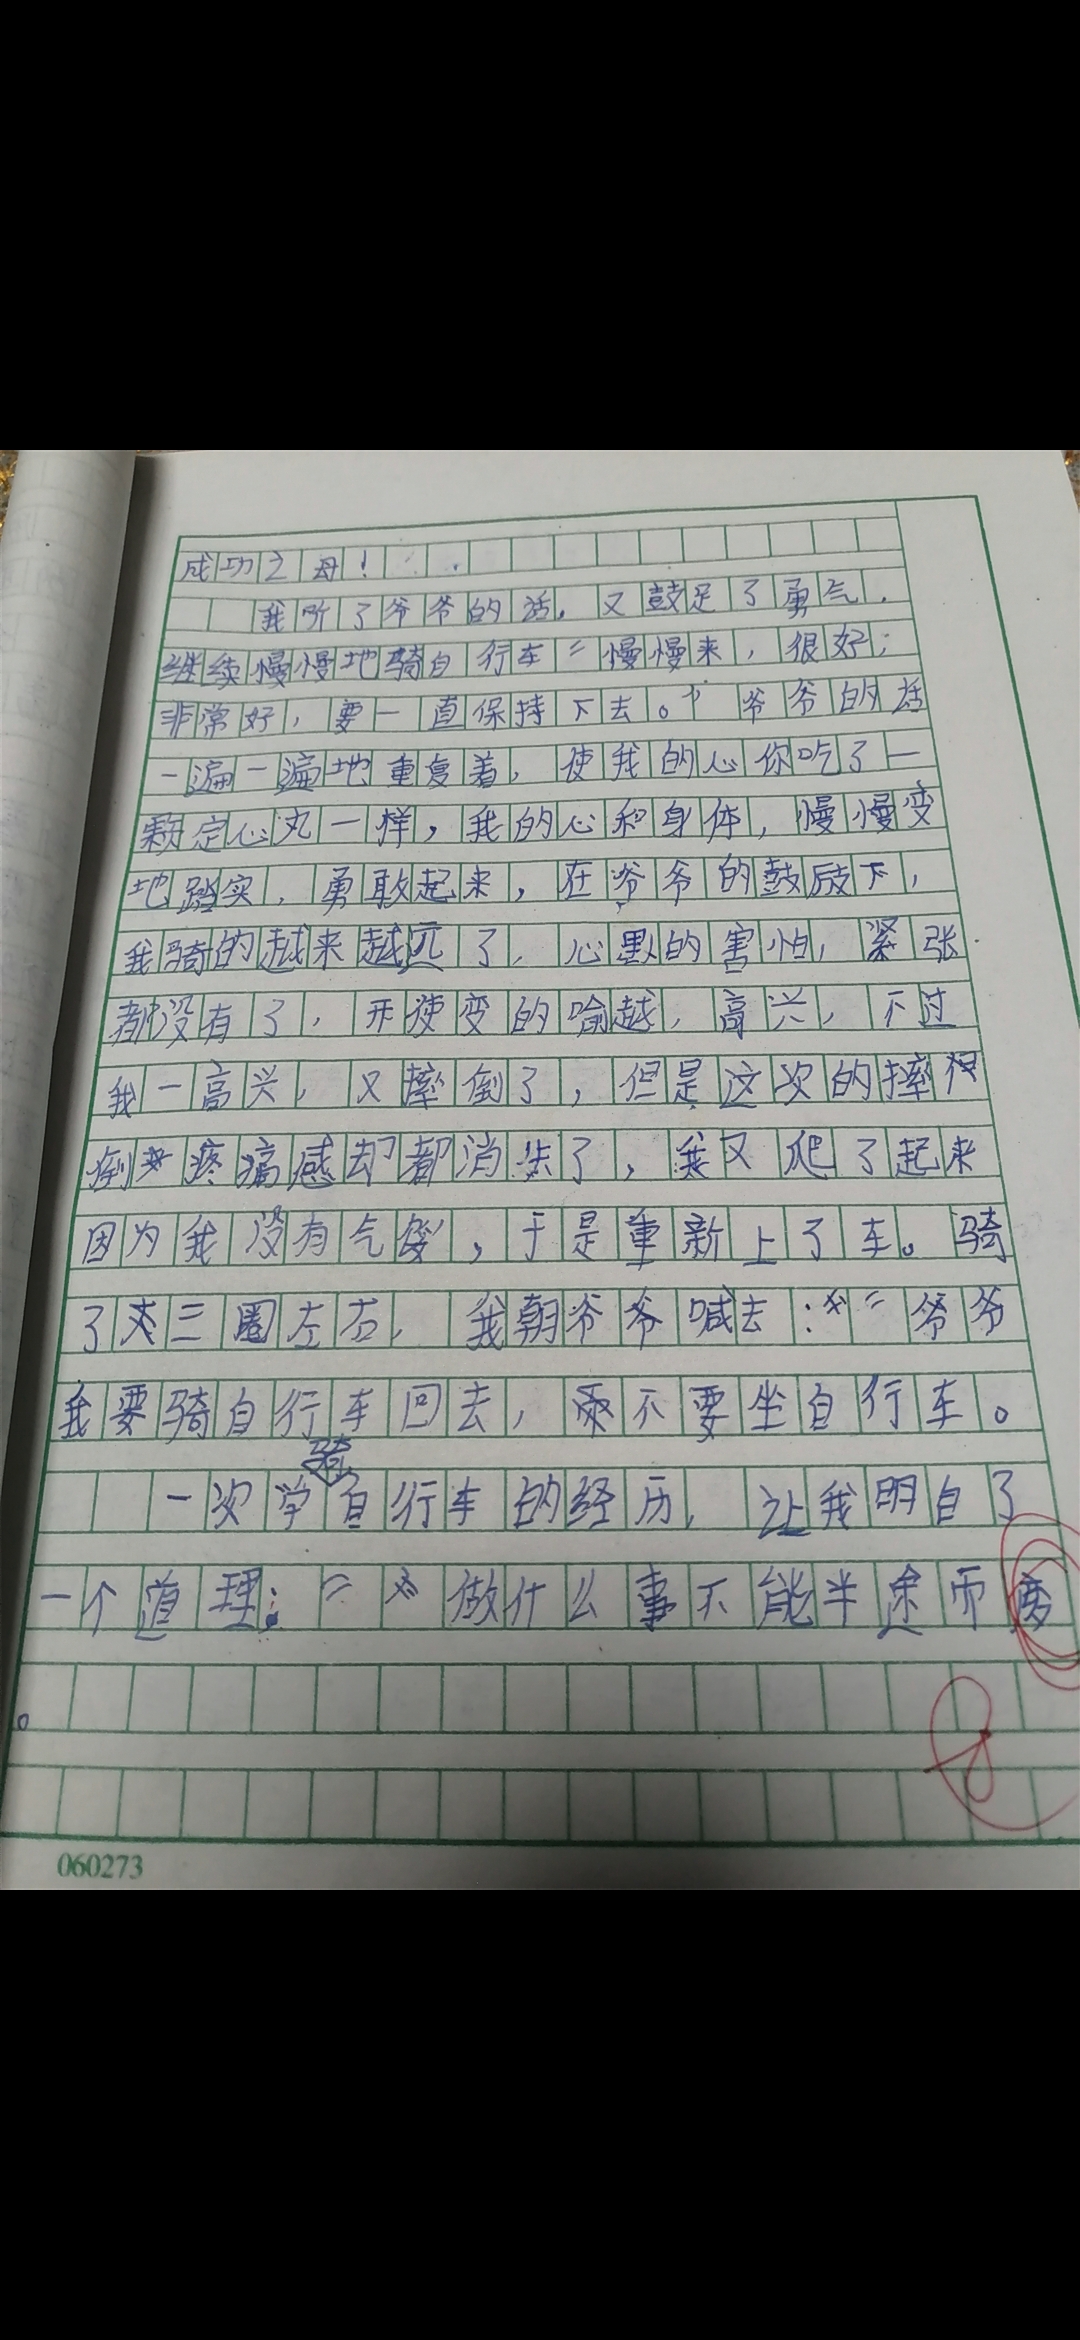 成功之母！
我听了爷爷的话，又鼓足了勇气，
继续慢慢地骑自行车“慢慢来，很好；
非常好，要一直保持下去。”爷爷的话
一遍一遍地重复着，使我的心你吃了一
颗定心丸一样，我的心和身体，慢慢变
地踏实，勇敢起来，在爷爷的鼓励下，
我骑的越来越远了，心里的害怕，紧张
都没有了，开使变的喻越，高兴，不过
我一高兴，又摔倒了，但是这次的摔
倒疼痛感却都消失了，我又爬了起来
因为我没有气馁，于是重新上了车。骑
了三圈左右，我朝爷爷喊去：“爷爷
我要骑自行车回去，不要坐自行车。
一次学骑自行车的经历，让我明白了
一个道理：“做什么事不能半途而废
。
060273